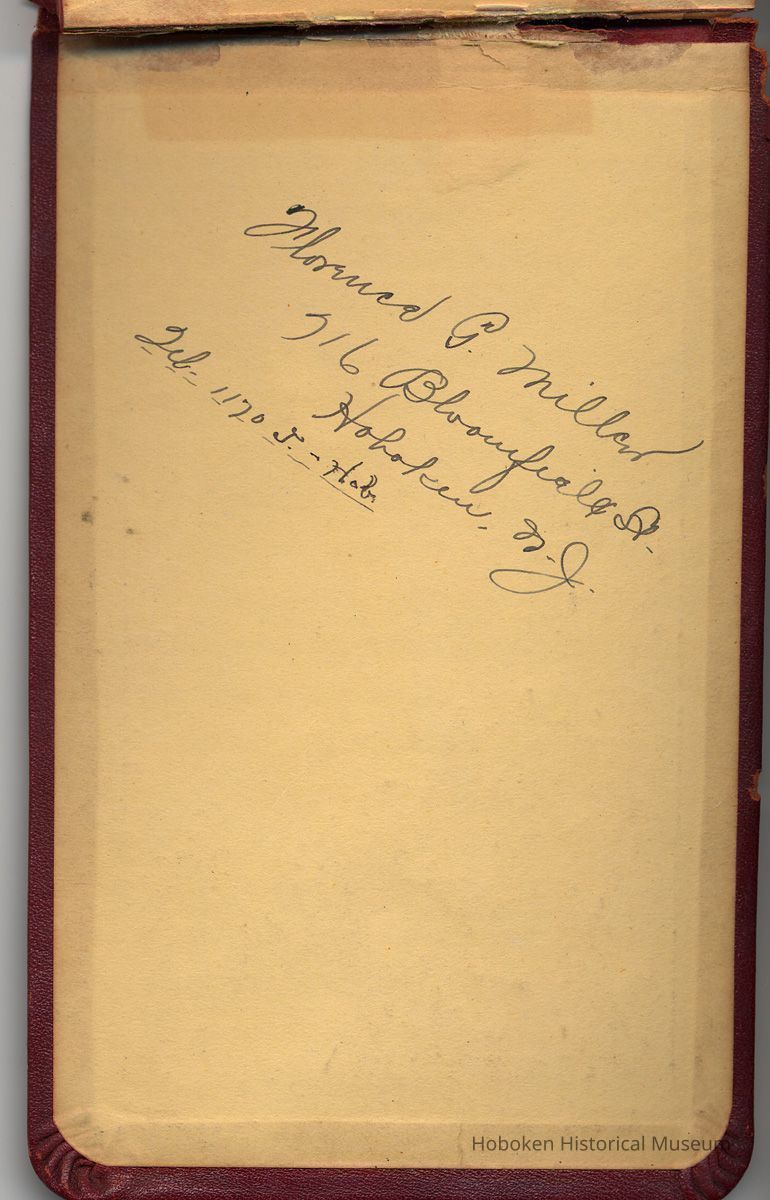 Florence G. Miller
716 Bloomfield St.
Hoboken, N.J.
Tel. 1170 J. - Hob.
Hoboken Historical Museum